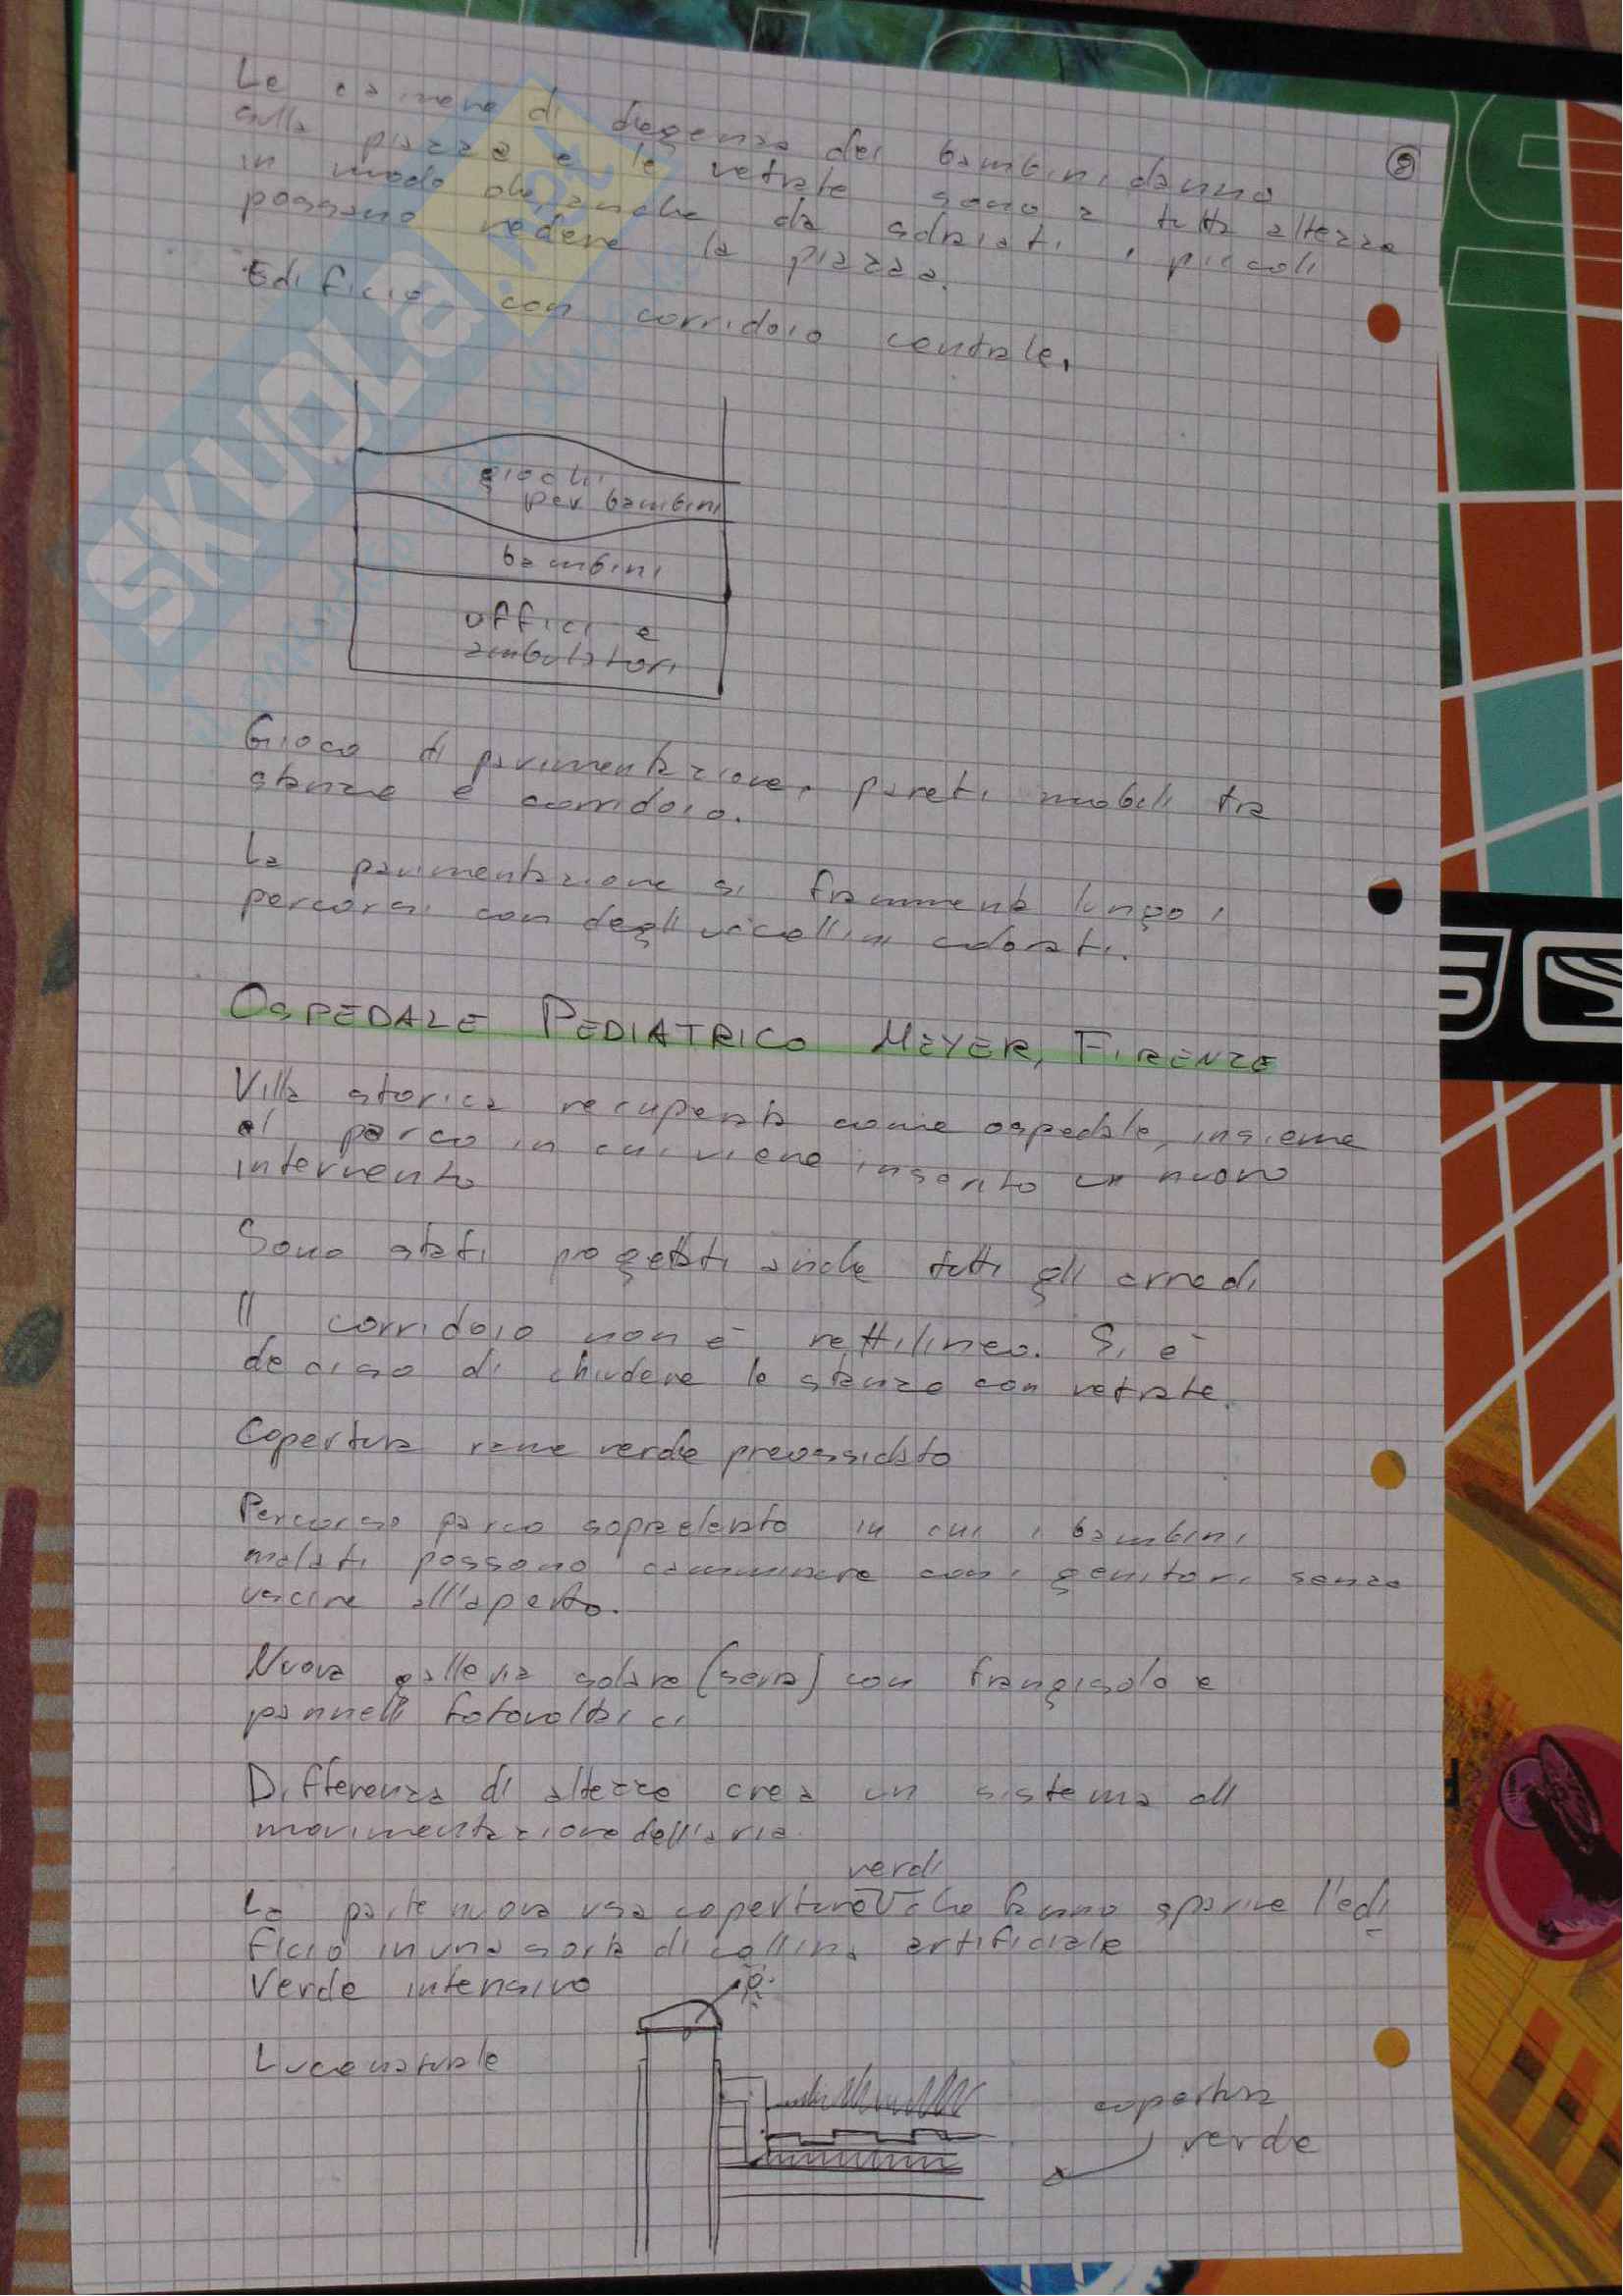 Le camere di degenza dei bambini danno
sulla piazza e le vetrate sono a tutta altezza
in modo che anche da sdraiati i piccoli
possano vedere la piazza.
Edificio con corridoio centrale.
giochi
per bambini
bambini
uffici e
ambulatori
Gioco di pavimentazione, pareti mobili tra
stanze e corridoio.
La pavimentazione si frammenta lungo i
percorsi con degli uccellini colorati.
OSPEDALE PEDIATRICO MEYER, FIRENZE
Villa storica recuperata come ospedale, insieme
al parco in cui viene inserito un nuovo
intervento
Sono stati progettati anche tutti gli arredi
Il corridoio non è rettilineo. Si è
deciso di chiudere le stanze con vetrate.
Copertura rame verde preossidato
Percorso parco sopraelevato in cui i bambini
malati possono camminare con i genitori senza
uscire all'aperto.
Nuova galleria solare (serra) con frangisole e
pannelli fotovoltaici
Differenza di altezze crea un sistema di
movimentazione dell'aria.
verdi
La parte nuova usa coperture V che fanno sparire l'edi
ficio in una sorta di collina artificiale
Verde intensivo
Luce naturale
copertura
verde
SKUOLA
.NET
8